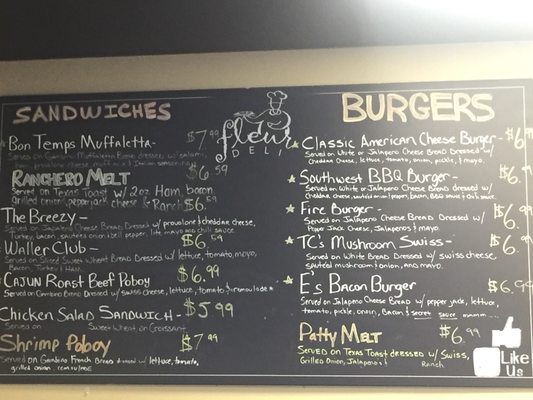 SANDWICHES
Bon Temps Muffaletta- $7.99
Served on Gambino Muffaletta Bread dressed w/ salami,
Ranchero Melt $6.59
Served on Texas Toast w/ 2oz Ham, bacon
grilled onion, pepperjack cheese & Ranch
The Breezy - $6.59
Served on Jalapeno Cheese Bread Dressed w/ provolone & cheddar cheese,
Turkey, bacon, sauteed onion, bell pepper, lite mayo and chili sauce
Waller Club - $6.59
Served on Sliced Sweet Wheat Bread Dressed w/ lettuce, tomato, mayo,
Bacon, Turkey & Ham.
Cajun Roast Beef Poboy $6.99
Served on Gambino Bread Dressed w/ swiss cheese, lettuce, tomato & remoulade
Chicken Salad Sandwich - $5.99
Served on Sweet Wheat or Croissant
Shrimp Poboy $7.99
Served on Gambino French Bread dressed w/ lettuce, tomato,
grilled onion, remoulade
fleur
DELI
BURGERS
Classic American Cheese Burger - $6.
Served on White or Jalapeno Cheese Bread Dressed w/
Cheddar Cheese, lettuce, tomato, onion, pickle, and mayo.
Southwest BBQ Burger - $6.
Served on White or Jalapeno Cheese Bread dressed w/
Cheddar cheese, sauteed onion & pepper, bacon, BBQ sauce & chili sauce
Fire Burger - $6.
Served on Jalapeno Cheese Bread Dressed w/
Pepper Jack Cheese, Jalapenos & mayo.
TC's Mushroom Swiss - $6.
Served on White Bread Dressed w/ swiss cheese,
sauteed mushroom & onion, and mayo.
E's Bacon Burger $6.99
Served on Jalapeno Cheese Bread w/ pepper jack, lettuce,
tomato, pickle, onion, Bacon & secret sauce
Patty Melt $6.99
Served on Texas Toast dressed w/ Swiss,
Grilled Onion, Jalapeno & Ranch
Like
Us